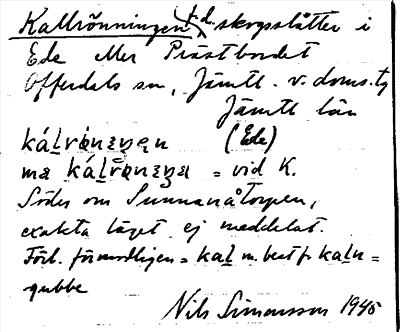 Kallrönningen f.d. skogsslåtter i
Ede eller Prästbordet
Offerdals sn, Jämtl. v. doms.tg
Jämtl län
(Ede)
ma = vid K.
Söder om Sunnanåtorpen,
exakta läget ej meddelat.
Förl. förmodligen = kal̲ m. best. f. kaln =
gubbe
Nils Simonsson 1945